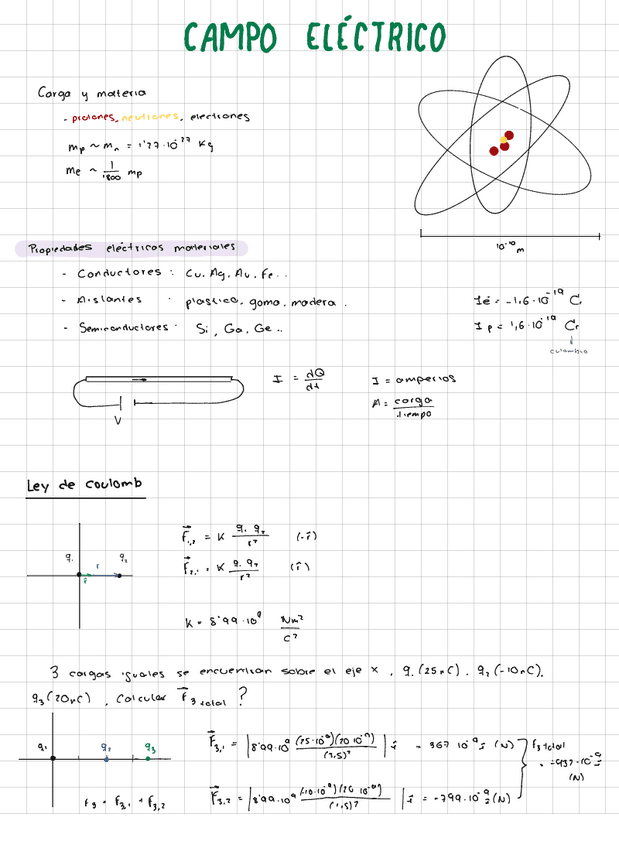 CAMPO ELÉCTRICO
Carga y materia
- protones, neutrones, electrones
mp ~ mn = 1'27·10⁻²⁷ Kg
me ~ 1/1800 mp
10⁻¹⁰ m
Propiedades eléctricas materiales
- Conductores : Cu, Ag, Au, Fe...
- Aislantes : plastico, goma, madera.
- Semiconductores : Si, Ga, Ge...
1é = -1,6·10⁻¹⁹ C
1p = 1,6·10⁻¹⁹ C
culombio
V
I = dQ/dt
I = amperios
A = carga/tiempo
Ley de Coulomb
q₁ r q₂
r̂
F₁,₂ = K q₁ q₂/r² (-î)
F₂,₁ = K q₁ q₂/r² (î)
K = 8'99·10⁹ Nm²/C²
3 cargas iguales se encuentran sobre el eje x, q₁(25nC), q₂(-10nC),
q₃(20nC), Calcular F₃ total?
q₁ q₂ q₃
F₃ = F₃,₁ + F₃,₂